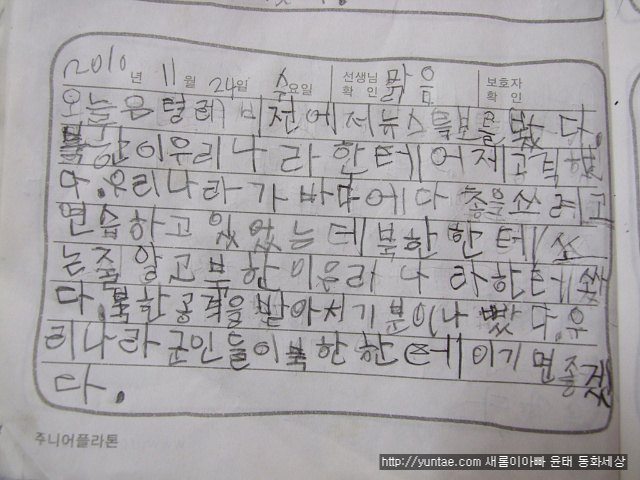 2010년 11월 24일 수요일 선생님 확인 맑음 보호자 확인
오늘은 텔레비전에서 뉴스를 보았다.
북한이 우리나라 한테 어제 공격했
다. 우리나라가 바다에다 총을 쏘려고
연습하고 있었는데 북한한테 쏘
는줄 알고 북한이 우리나라한테 쐈
다. 북한 공격을 받아서 기분이 나빴다. 우
리나라 군인들이 북한한테 이기면 좋겠
다.
주니어플라톤
http://yuntae.com 새롬이아빠 윤태 동화세상